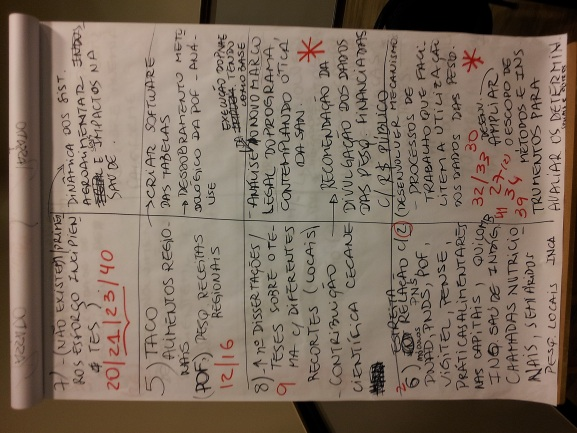 7) - (NÃO EXISTEM) PRIME
ROS ESFORÇO INCIPIEN
TES)
20/21/23/40
DINÂMICA DOS SIST.
AGROALIMENTAR
E IMPACTOS NA
SAÚDE.
5) TACO
ALIMENTOS REGIO-
NAIS
(POF) PESQ RECEITAS
REGIONAIS
12/16
→ CRIAR SOFTWARE
DAS TABELAS
→ DESDOBRAMENTO METO
DOLÓGICO DA POF - ANÁ-
LISE
8) ↑ nº DISSERTAÇÕES/
9 TESES SOBRE O TE-
MA C/ DIFERENTES
RECORTES (LOCAIS)
- CONTRIBUIÇÃO
CIENTÍFICA CECANE
EXECUÇÃO DO PNAE
TENDO
COMO BASE
- ANÁLISE NOVO MARCO
LEGAL DO PROGRAMA,
CONTEMPLANDO ÓTICA
DA SAN.
→ RECOMENDAÇÃO DA
DIVULGAÇÃO DOS DADOS
DAS PESQ. FINANCIADAS
C/ R$ PÚBLICO
6) RELAÇÃO C/ (2)
PNAD, PNDS, POF,
PNS
VIGITEL, PENSE,
PRÁTICAS ALIMENTARES
NAS CAPITAIS, QUILOM
INQ. SAÚDE INDÍG,
CHAMADAS NUTRICIO
NAIS, SEMIÁRIDOS
PESQ LOCAIS INCA
(DESENVOLVER MECANISMO)
- PROCESSOS DE
TRABALHO QUE FACI
LITEM A UTILIZAÇÃO
DOS DADOS DAS PESQ.
32/33 30
27
AMPLIAR
34
O ESCOPO DE
39
MÉTODOS E INS
TRUMENTOS PARA
AVALIAR OS DETERMIN